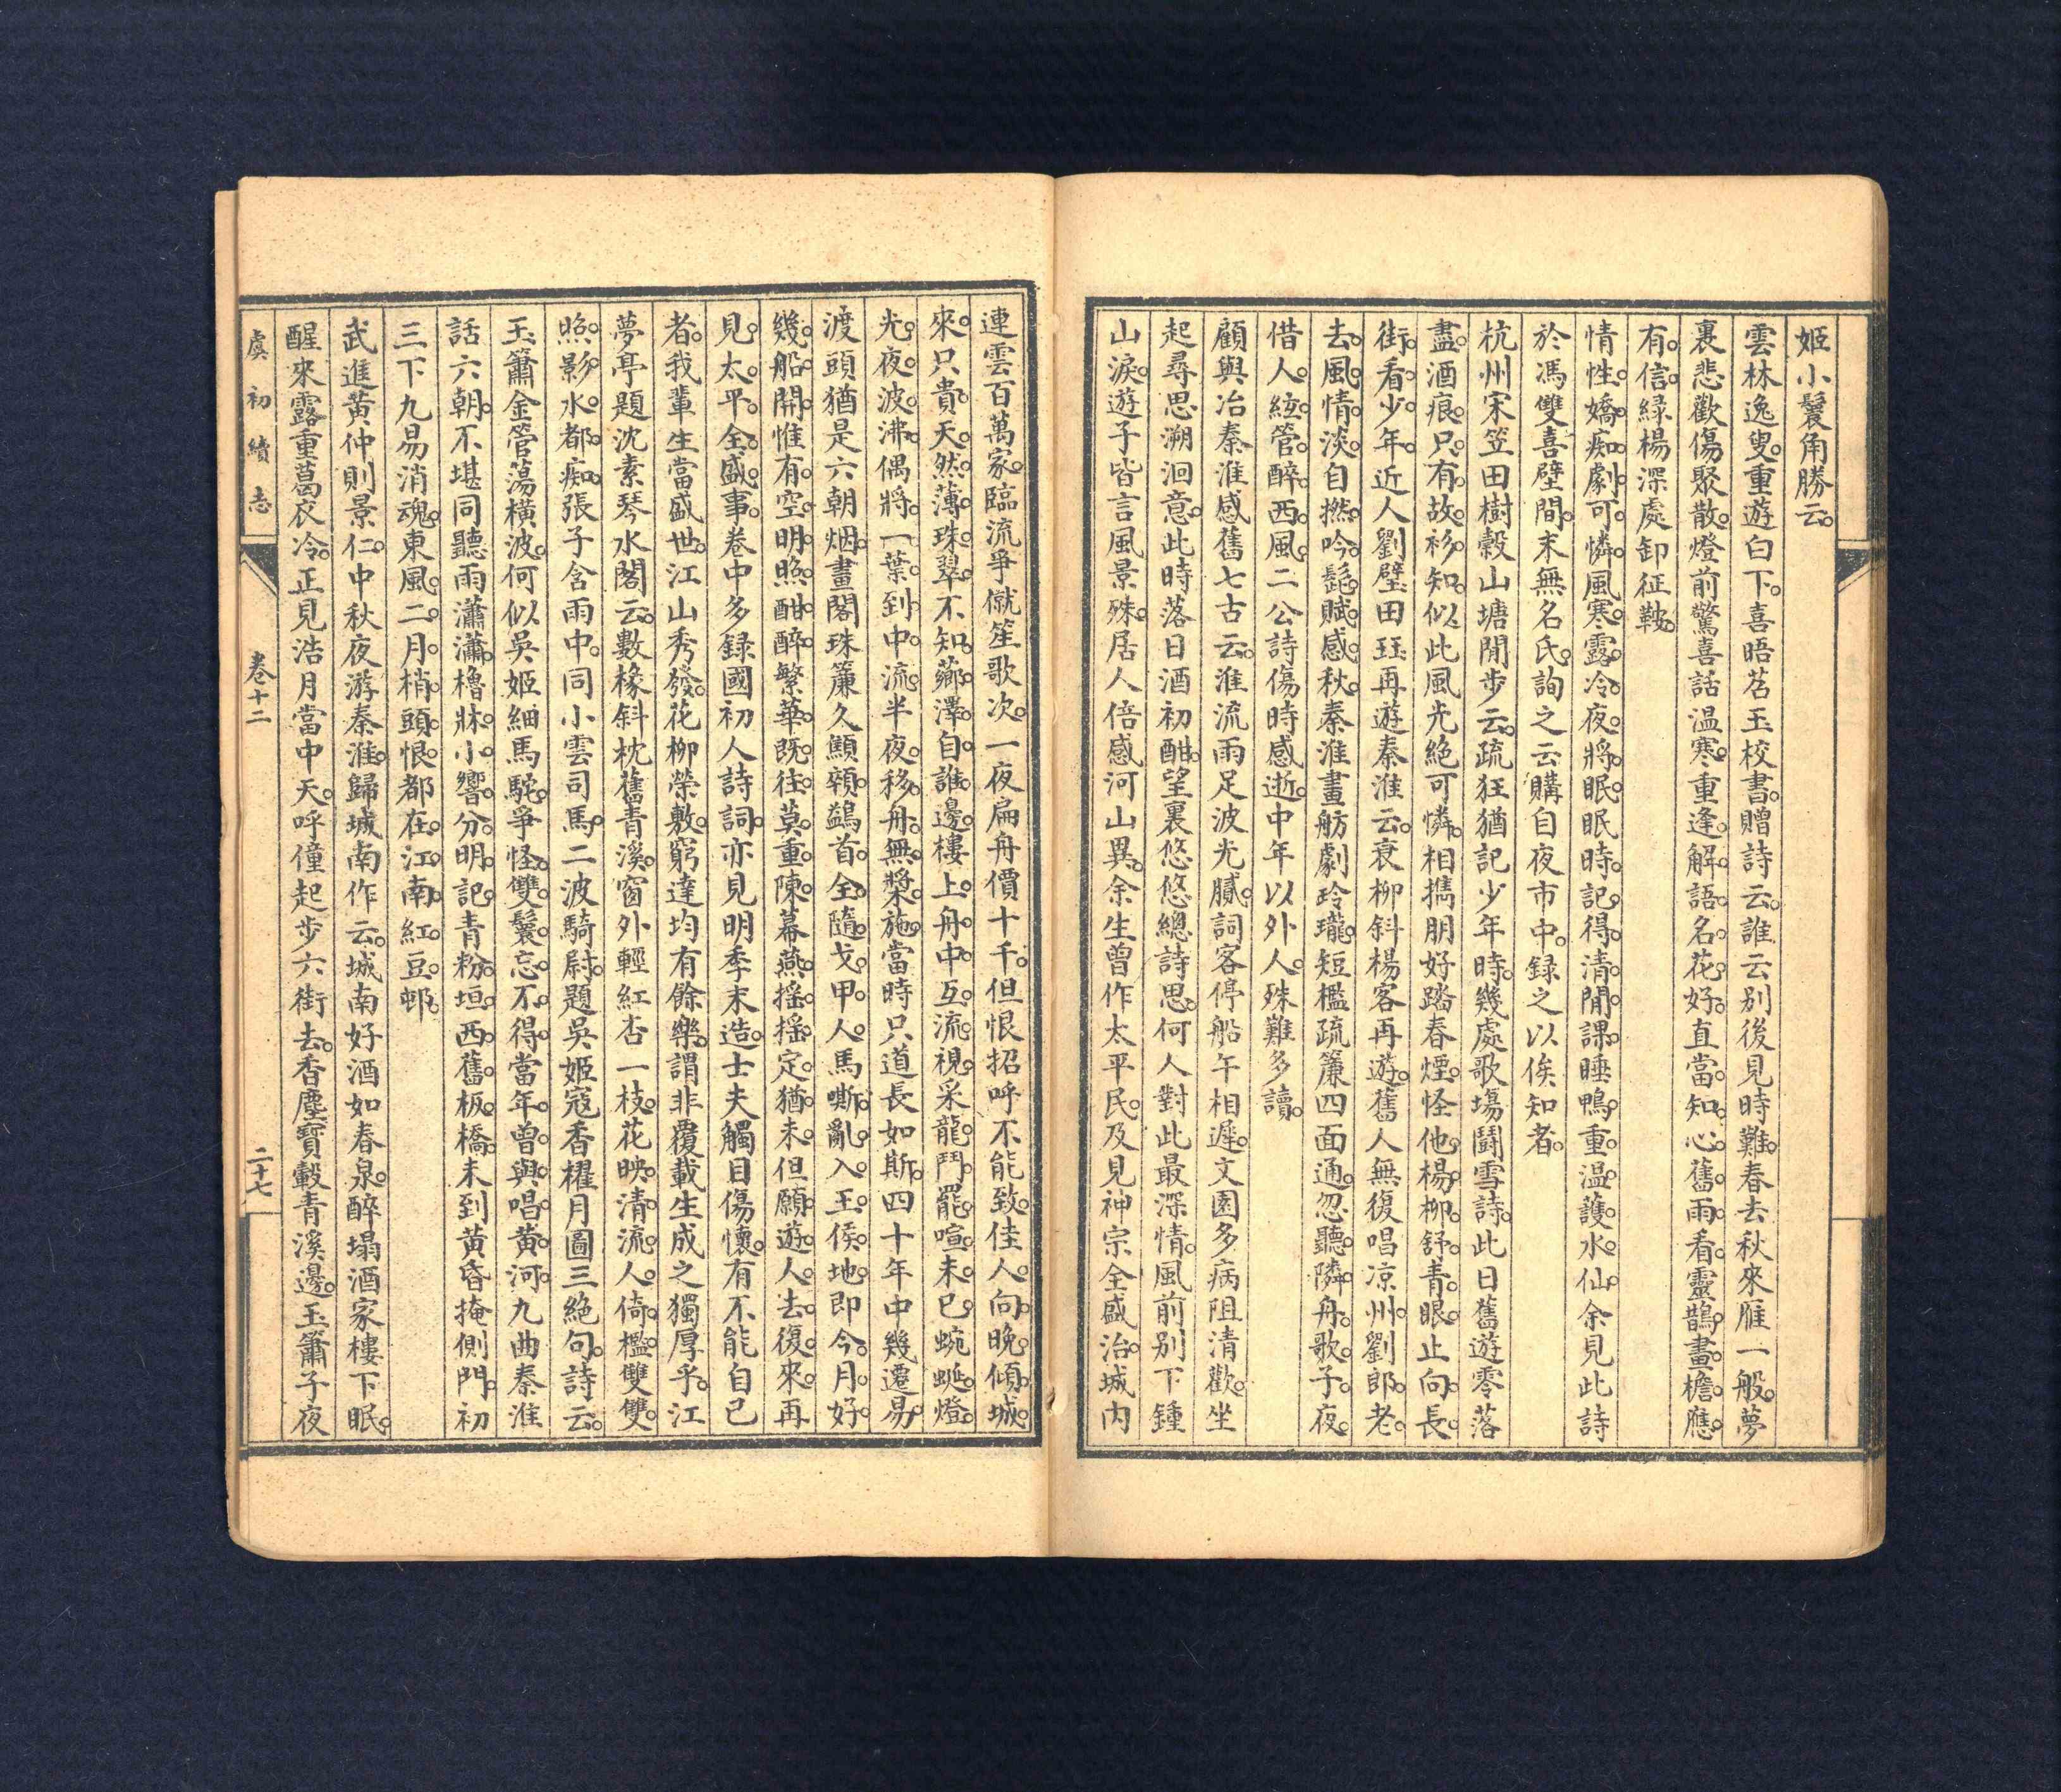 姬小鬟角勝云。
雲林逸叟。重遊白下。喜晤茗玉校書。贈詩云。誰云別後見時難。春去秋來雁一般。夢
裏悲歡傷聚散。燈前驚喜話溫寒。重逢。解語。名。花。好。直當。知。心。舊。雨。看。靈。鵲。畫。檐。應。
有。信。綠楊深處卸征鞍。
情性。嬌。痴。劇。可。憐。風寒。露。冷。夜。將。眠。眠時。記。得。清。閒。課。睡鴨。重。溫。護。水。仙。余見此詩
於馮雙喜壁間。末無名氏。詢之云購自夜市中。錄之以俟知者。
杭州宋笠田樹穀山塘閒步云。疏狂猶記少年時。幾處歌場鬪雪詩。此日舊遊零落
盡。酒痕。只。有。故。衫。知。似此風光絕可憐。相攜朋好踏春煙。怪他。楊。柳。舒。青。眼。止向。長。
街。看。少。年。近人劉璧田珏再遊秦淮云。衰柳斜楊客再遊。舊人無復唱涼州。劉郎。老。
去。風。情。淡。自撚。吟。髭。賦。感。秋。秦淮畫舫劇玲瓏。短檻疏簾四面通。忽聽。隣。舟。歌。子。夜。
借。人。絃。管。醉。西。風。二公詩傷時感逝。中年以外人。殊難多讀。
顧與治秦淮感舊七古云。淮流雨足波光膩。詞客停船午相遲。文園多病阻清歡。坐
起尋思溯洄意。此時落日酒初酣。望裏悠悠總詩思。何人對此最深情。風前別下鍾
山淚。遊子皆言風景殊。居人倍感河山異。余生曾作太平民。及見神宗全盛治。城內
連雲百萬家。臨流爭僦笙歌次。一夜扁舟價十千。但恨招呼不能致。佳人。向。晚。傾。城。
來。只貴。天。然。薄。珠。翠。不知。薌。澤。自誰。邊。樓上。舟。中。互。流。視。采龍。鬥。罷。喧。未。已。蜿。蜒。燈。
光。夜。波。沸。偶將。一。葉。到。中。流。半夜。移。舟。無。槳。施。當時只道長如斯。四十年中幾遷易。
渡頭猶是六朝烟。畫閣珠簾久顯顇。鷁首。全。隨。戈。甲。人。馬嘶。亂。入。王。侯。地。即今。月。好。
幾。船。開。惟有。空。明。照。酣。醉。繁華。既。往。莫。重。陳。幕燕。搖。搖。定。猶。未。但願。遊。人。去。復。來。再
見。太。平。全。盛。事。卷中多錄國初人詩詞。亦見明季末造。士夫觸目傷懷。有不能自已
者。我輩生當盛世。江山秀發。花柳榮敷。窮達均有餘樂。謂非覆載生成之獨厚乎。江
夢亭題沈素琴水閣云。數椽斜枕舊青溪。窗外輕紅杏一枝。花映。清。流。人。倚。檻。雙雙。
照。影。水。都。痴。張子含雨中。同小雲司馬。二波騎尉。題吳姬寇香櫂月圖三絕句。詩云。
玉簫金管蕩橫波。何似吳姬細馬駝。爭怪。雙。鬟。忘。不。得。當年。曾。與。唱。黃。河。九曲秦淮
話六朝。不堪同聽雨瀟瀟。櫓牀。小。響。分。明。記。青粉。垣。西。舊。板。橋。未到黃昏掩側門。初
三下九易消魂。東風。二。月。梢。頭。恨。都在。江。南。紅。豆。邨。
武進黃仲則景仁。中秋夜游秦淮。歸城南作云。城南好酒如春泉。醉塌酒家樓下眠。
醒來露重葛衣冷。正見浩月當中天。呼僮起步六街去。香塵寶轂青溪邊。玉簫子夜
虞初續志
卷十二
二十七